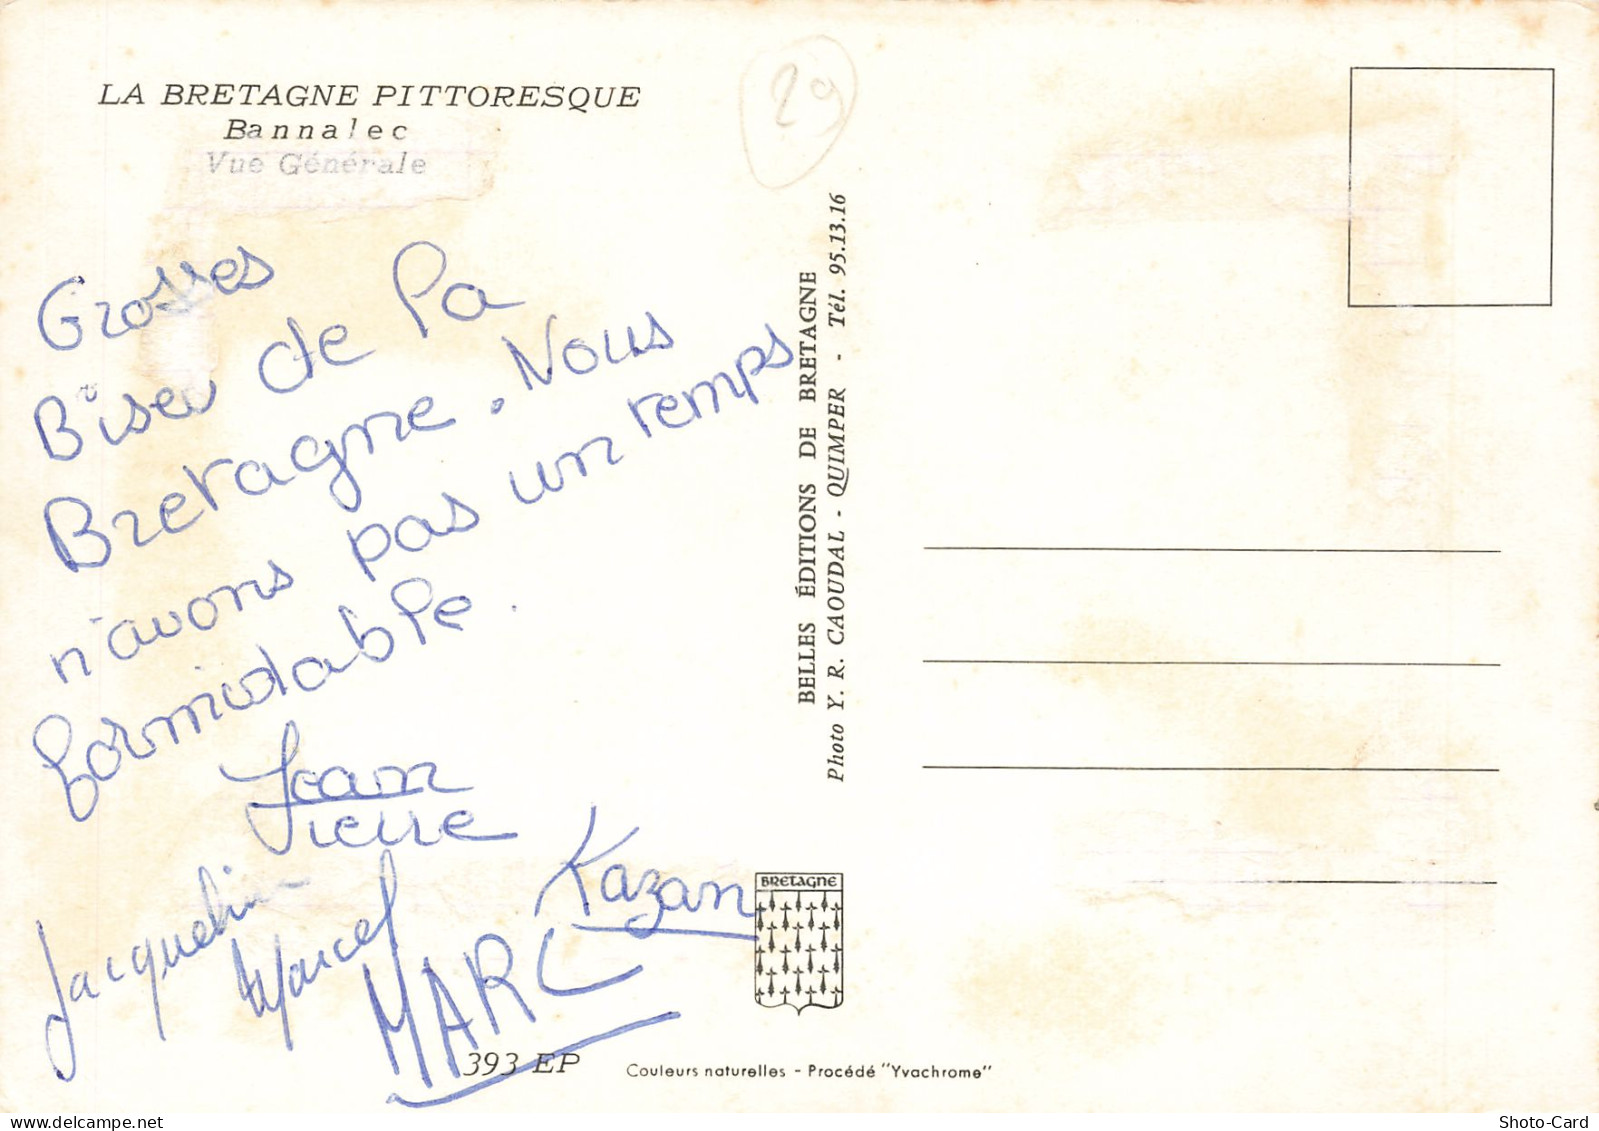 LA BRETAGNE PITTORESQUE
Bannalec
Vue Générale
29
Grosses
Bises de la
Bretagne. Nous
n'avons pas un temps
formidable.
Jean
Pierre
Jacqueline
Marcel
Kazan
MARC
BELLES ÉDITIONS DE BRETAGNE
Photo Y. R. CAOUDAL - QUIMPER - Tél. 95.13.16
BRETAGNE
393 EP
Couleurs naturelles - Procédé "Yvachrome"
Shoto-Card